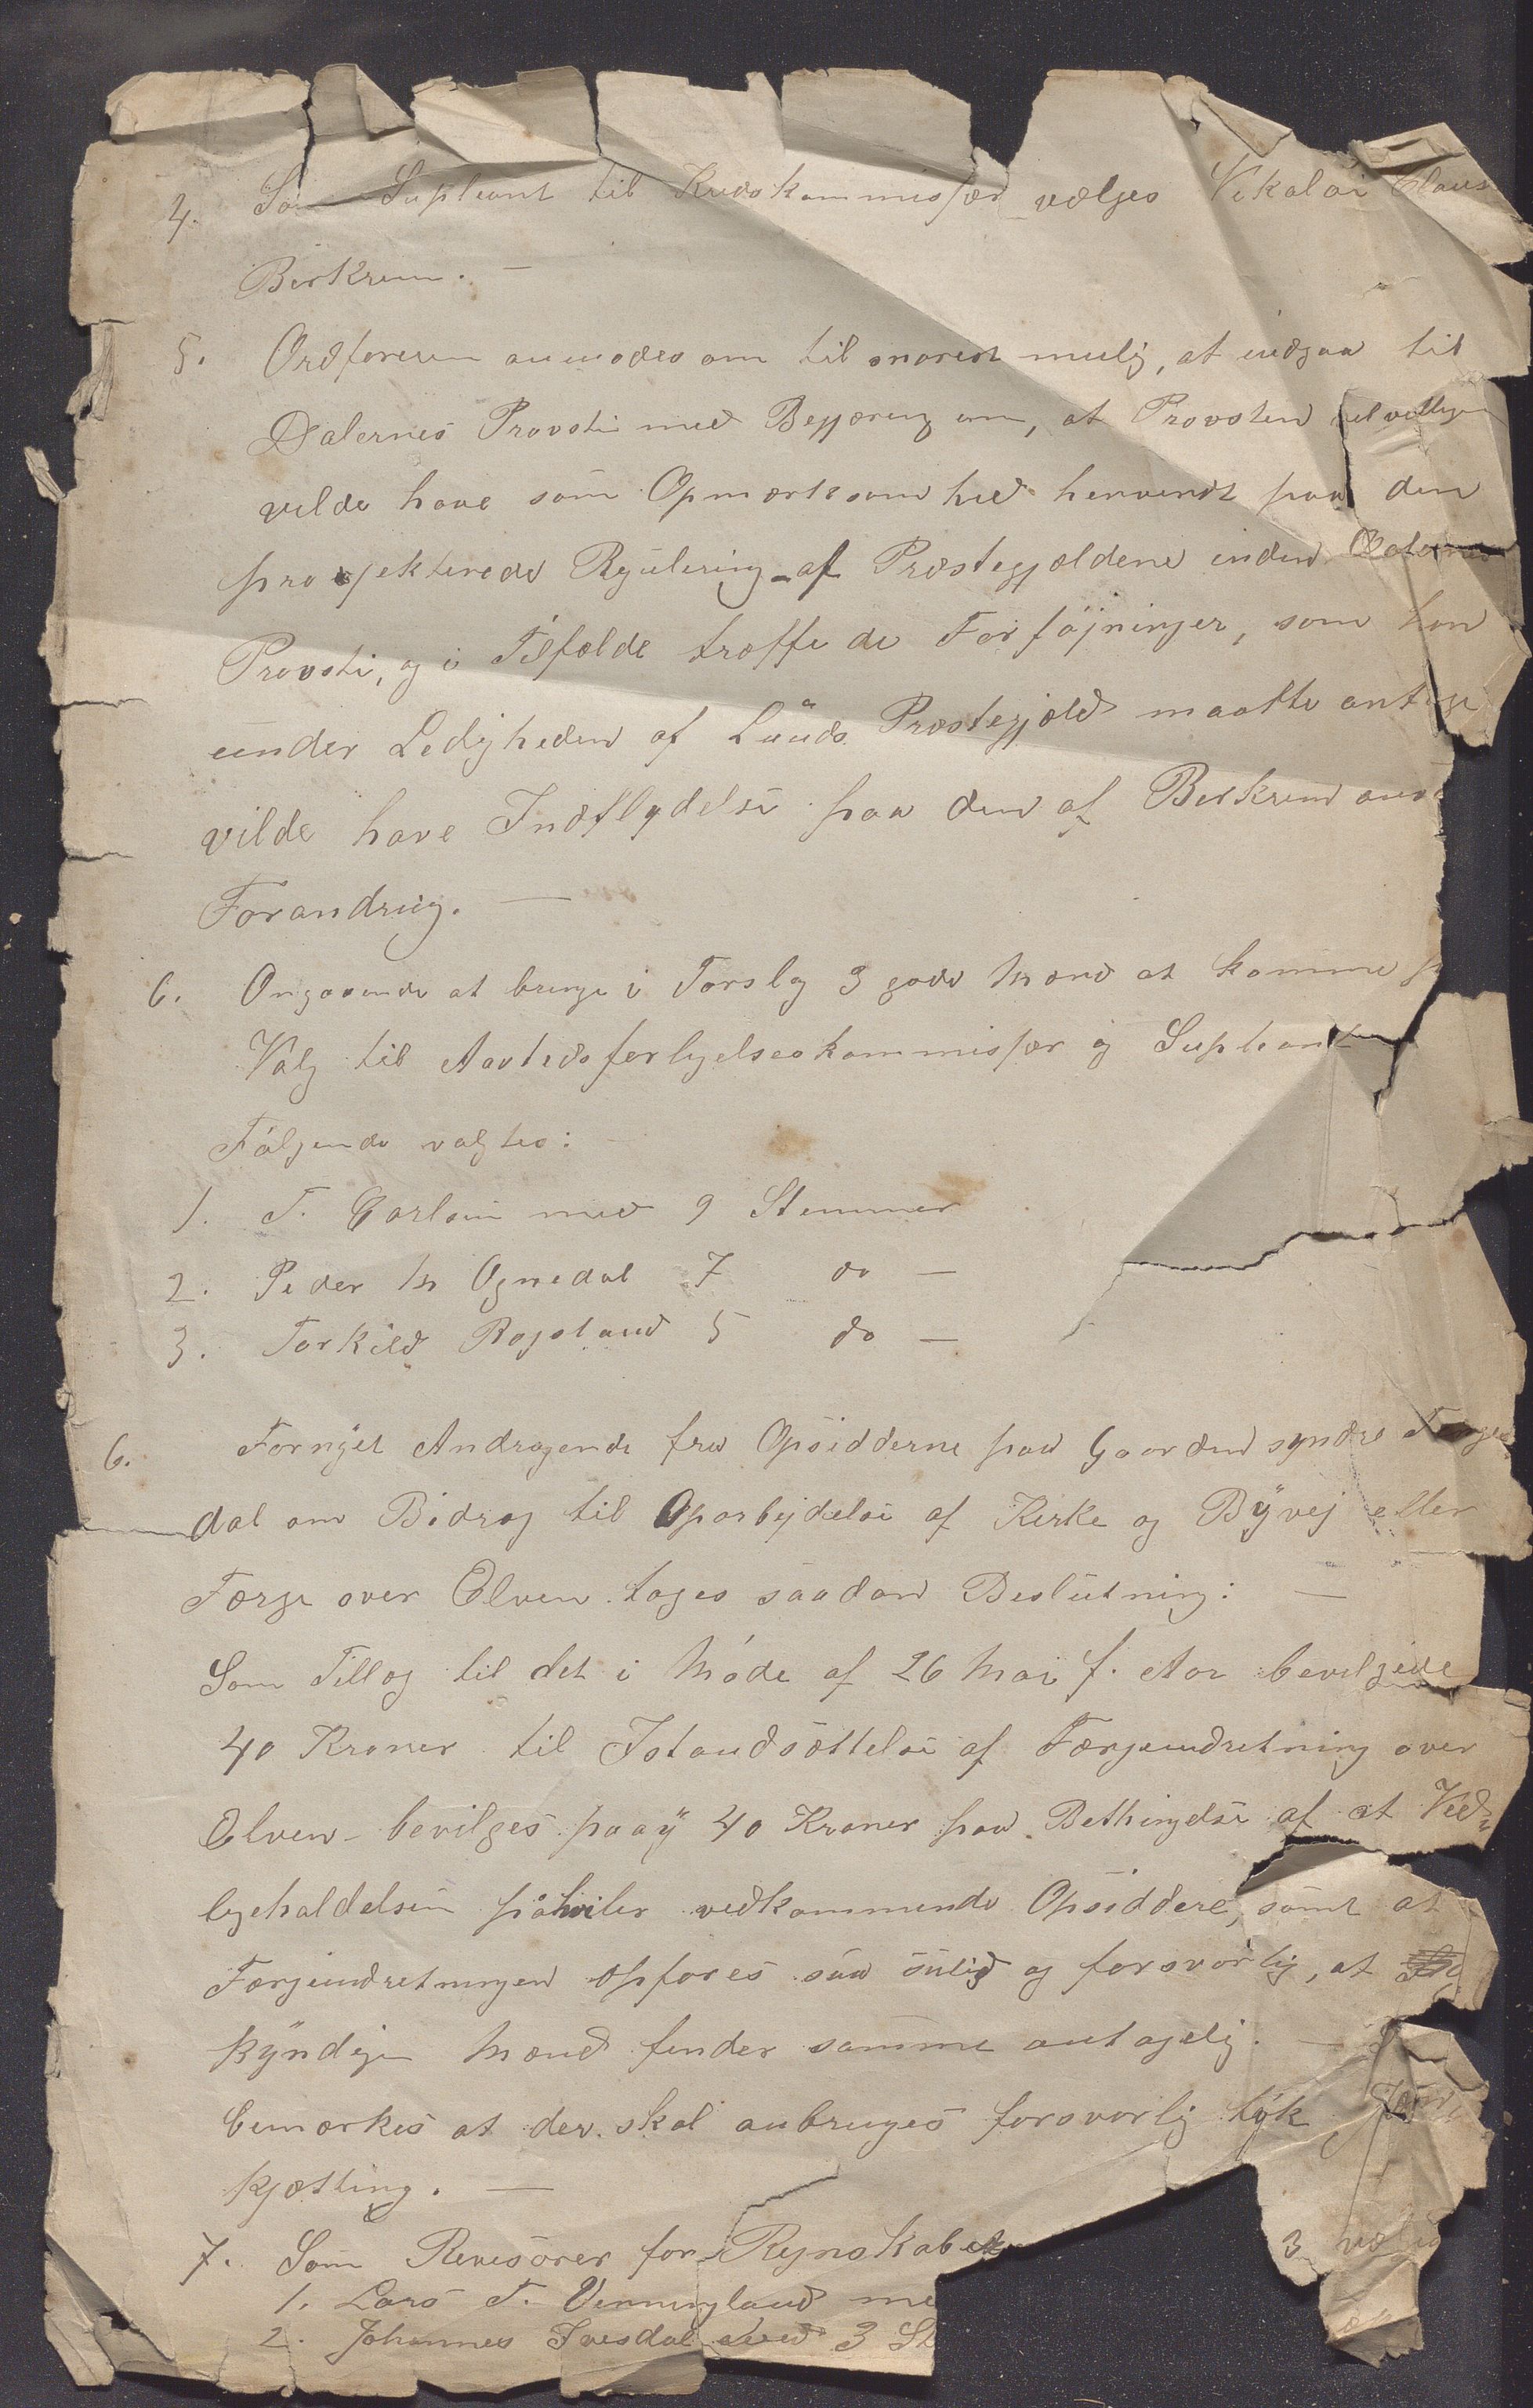 4. Som Supleant til Kredskommissær vælges Vikaløi Claus
Birkrem. —
5. Ordføreren anmodes om til snarest mulig, at indgaa til
Dalernes Provsti med Begjæring om, at Provsten velvilligen
vilde have sin Opmærksomhed henvendt paa den
projekterede Regulering af Præstegjældene inden Dalernes
Provsti, og i Tilfælde træffe de Forføjninger, som han
under Ledigheden af Lunds Præstegjæld maatte antage
vilde have Indflydelse paa den af Birkrem
Forandring. —
6. Angaaende at bringe i Forslag 3 gode Mænd at komme
Valg til Aastedsforligelseskommissær og Supleant
Følgende valgtes:
1. T. Carlsen med 9 Stemmer
2. Peder M Ognedal 7 do —
3. Torkild Rogstand 5 do —
6. Fornyet Andragende fra Opsidderne paa Gaarden syndre
dal om Bidrag til Oparbejdelse af Kirke og Byvej eller
Færge over Elven tages saadan Beslutning: —
Som Tillæg til det i Møde af 26 Mai f. Aar bevilgede
40 Kroner til Istandsættelse af Færgeindretning over
Elven bevilges paany 40 Kroner paa Bethingelse af at Ved-
ligeholdelsen påhviler vedkommende Opsiddere, samt at
Færgeindretningen opføres saa solid og forsvarlig, at
kyndige Mænd finder samme antagelig. —
bemærkes at der skal anbringes forsvarlig tyk
kjætting. —
7. Som Revisorer for Regnskabet 3
1. Lars T. Vemmyland me
2. Johannes Ivesdal med 3 St